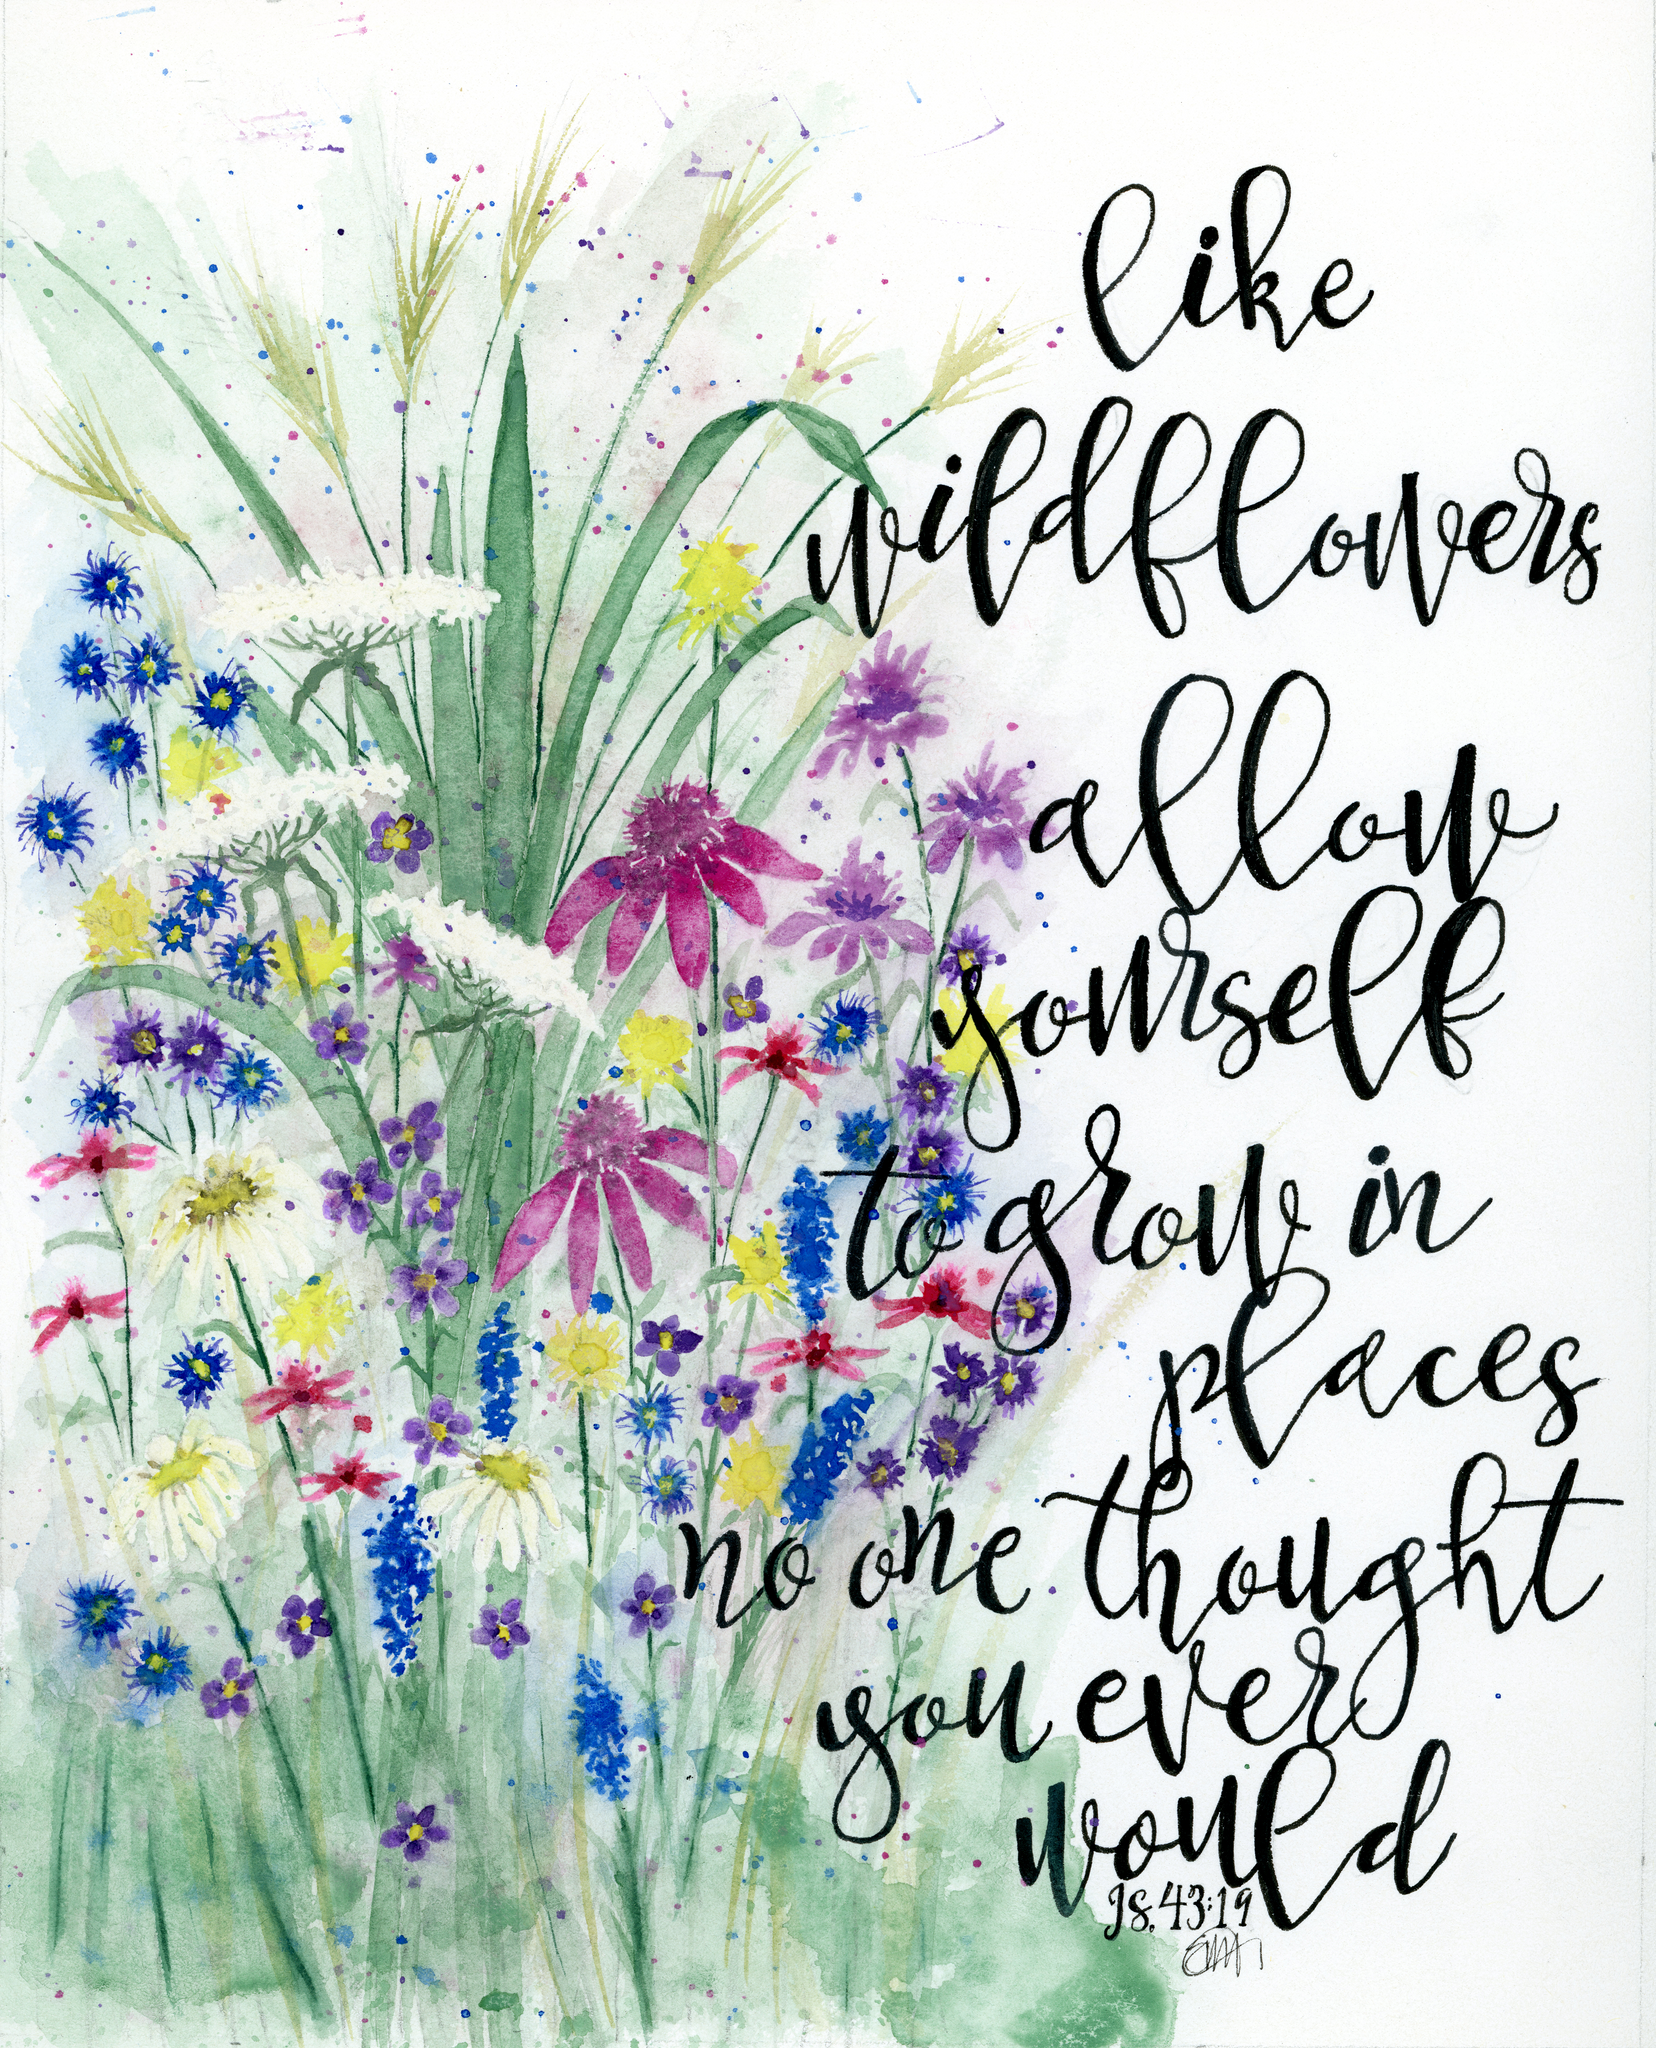 like
wildflowers
allow
yourself
to grow in
places
no one thought
you ever
would
Is. 43:19